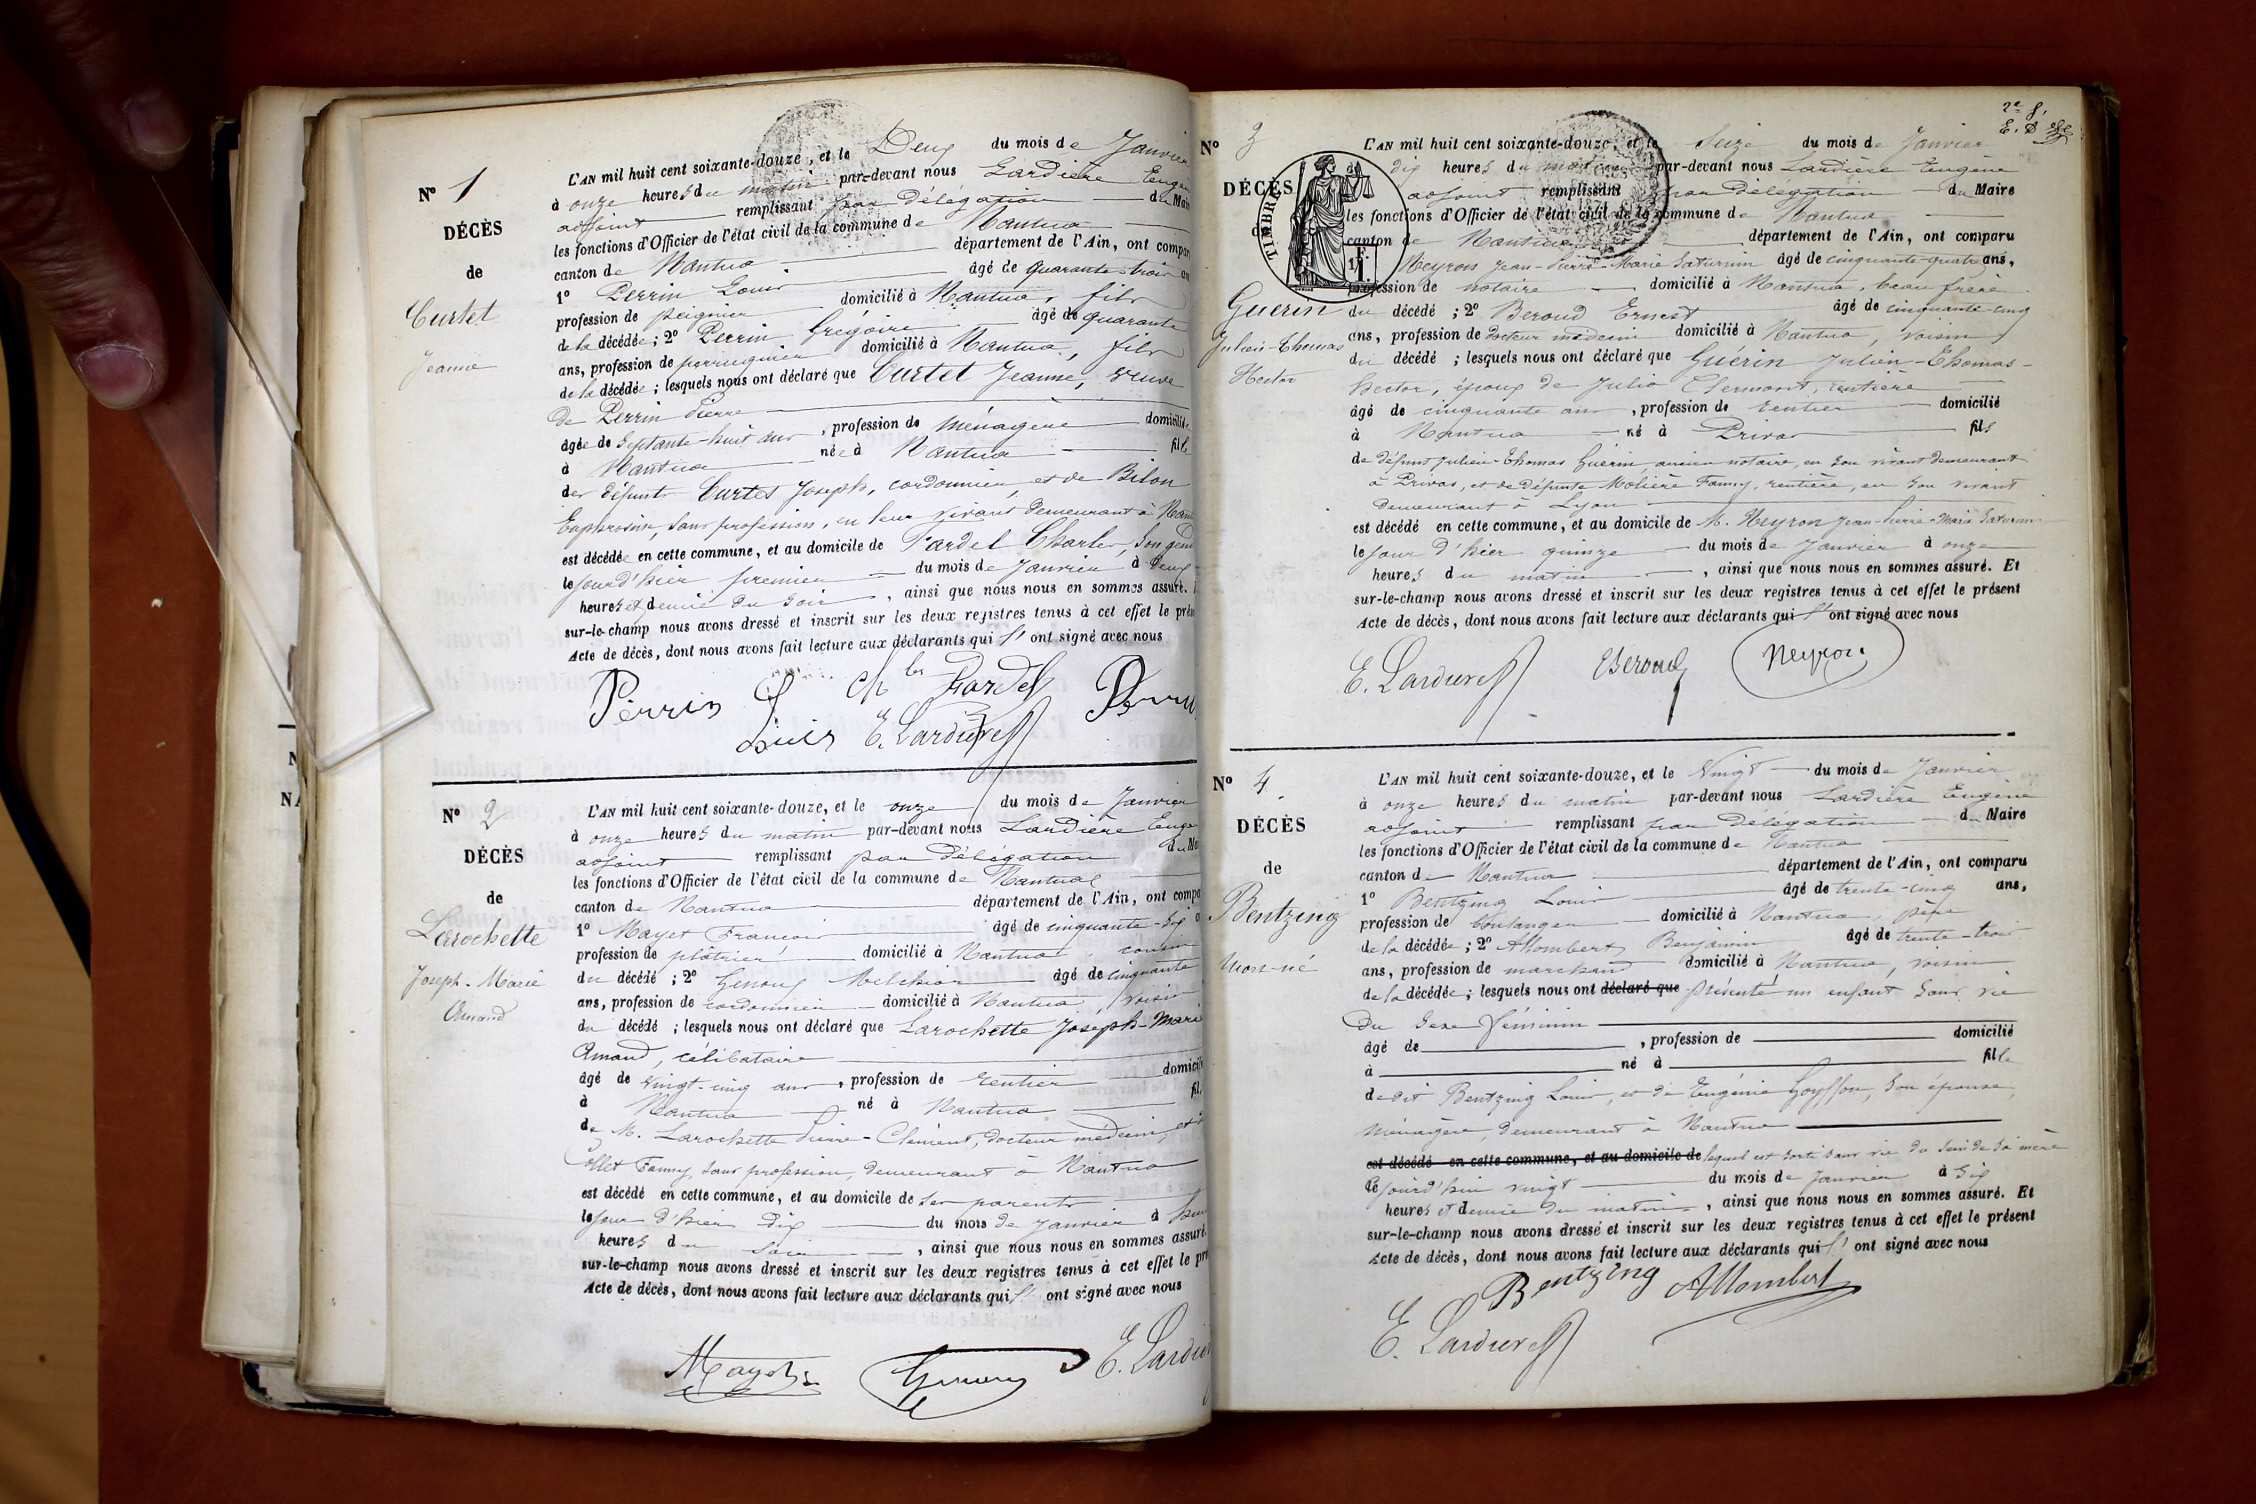 N° 1
DÉCÈS
de
Curtet
Jeanne
L'AN mil huit cent soixante-douze, et le Deux du mois de Janvier
à onze heures du matin par-devant nous Lardière Eugène
adjoint remplissant par délégation du Maire
les fonctions d'Officier de l'état civil de la commune de Nantua
canton de Nantua département de l'Ain, ont compar
1° Perrin Louis âgé de quarante-trois ans
profession de peignier domicilié à Nantua, fils
de la décédée; 2° Perrin Grégoire âgé de quarante
ans, profession de perruquier domicilié à Nantua, fils
de la décédée; lesquels nous ont déclaré que Curtet Jeanne, veuve
de Perrin Pierre
âgée de septante-huit ans, profession de ménagère domiciliée
à Nantua née à Nantua fille
des défunts Curtet Joseph, cordonnier, et de Bilon
Euphrosine, sans profession, en leur vivant demeurant à Nan
est décédée en cette commune, et au domicile de Pardel Charles, son gend
le jour d'hier premier du mois de Janvier à deux
heures et demie du soir, ainsi que nous nous en sommes assuré.
sur-le-champ nous avons dressé et inscrit sur les deux registres tenus à cet effet le prés
Acte de décès, dont nous avons fait lecture aux déclarants qui l' ont signé avec nous
Perrin Ch les Pardel
Louis E. Lardière
N° 2
DÉCÈS
de
Larochette
Joseph-Marie
Amand
L'AN mil huit cent soixante-douze, et le onze du mois de Janvier
à onze heures du matin par-devant nous Lardière Euge
adjoint remplissant par délégation du Ma
les fonctions d'Officier de l'état civil de la commune de Nantua
canton de Nantua département de l'Ain, ont compa
1° Mayet François âgé de cinquante-six
profession de plâtrier domicilié à Nantua, cousin
du décédé; 2° Genoux Melchior âgé de cinquante
ans, profession de cordonnier domicilié à Nantua, voisin
du décédé; lesquels nous ont déclaré que Larochette Joseph-Marie
Amand, célibataire
âgé de vingt-cinq ans, profession de rentier domicili
à Nantua né à Nantua fil
de M. Larochette Pierre-Clément, docteur médecin, et d
Collet Fanny, sans profession, demeurant à Nantua
est décédé en cette commune, et au domicile de ses parents
le jour d'hier dix du mois de Janvier à
heures du soir, ainsi que nous nous en sommes assuré.
sur-le-champ nous avons dressé et inscrit sur les deux registres tenus à cet effet le pré
Acte de décès, dont nous avons fait lecture aux déclarants qui l' ont signé avec nous
Mayet Genoux E. Lardiè
2e f.
N° 3
DÉCÈS
de
TIMBRE
Guérin
Julien-Thomas
Hector
L'AN mil huit cent soixante-douze, et le Seize du mois de Janvier
dix heures du matin par-devant nous Lardière Eugène
adjoint remplissant par délégation du Maire
les fonctions d'Officier de l'état civil de la commune de Nantua
canton de Nantua département de l'Ain, ont comparu
Neyron Jean-Pierre-Marie Saturnin âgé de cinquante-quatre ans,
profession de notaire domicilié à Nantua, beau frère
du décédé; 2° Beroud Ernest âgé de cinquante-cinq
ans, profession de docteur médecin domicilié à Nantua, voisin
du décédé; lesquels nous ont déclaré que Guérin Julien-Thomas-
Hector, époux de Julie Clermont, rentière
âgé de cinquante ans, profession de rentier domicilié
à Nantua né à Privas fils
de défunt Julien-Thomas Guérin, ancien notaire, en son vivant demeurant
à Privas, et de défunte Molière Fanny, rentière, en son vivant
demeurant à Lyon
est décédé en cette commune, et au domicile de M. Neyron Jean-Pierre-Marie Saturnin
le jour d'hier quinze du mois de Janvier à onze
heures du matin, ainsi que nous nous en sommes assuré. Et
sur-le-champ nous avons dressé et inscrit sur les deux registres tenus à cet effet le présent
Acte de décès, dont nous avons fait lecture aux déclarants qui l' ont signé avec nous
E. Lardière E Beroud Neyron
N° 4
DÉCÈS
de
Bentzing
mort-né
L'AN mil huit cent soixante-douze, et le Vingt du mois de Janvier
à onze heures du matin par-devant nous Lardière Eugène
adjoint remplissant par délégation du Maire
les fonctions d'Officier de l'état civil de la commune de Nantua
canton de Nantua département de l'Ain, ont comparu
1° Bentzing Louis âgé de trente-cinq ans,
profession de boulanger domicilié à Nantua, père
de la décédée; 2° Allombert Benjamin âgé de trente-trois
ans, profession de marchand domicilié à Nantua, voisin
de la décédée; lesquels nous ont déclaré que présenté un enfant sans vie
du sexe féminin
âgé de , profession de domicilié
à né à fille
de dit Bentzing Louis, et de Eugénie Goyffon, son épouse,
ménagère, demeurant à Nantua
est décédé en cette commune, et au domicile de lequel est sorti sans vie du sein de sa mère
ce jourd'hui vingt du mois de Janvier à six
heures et demie du matin, ainsi que nous nous en sommes assuré. Et
sur-le-champ nous avons dressé et inscrit sur les deux registres tenus à cet effet le présent
Acte de décès, dont nous avons fait lecture aux déclarants qui l' ont signé avec nous
Bentzing Allombert
E. Lardière